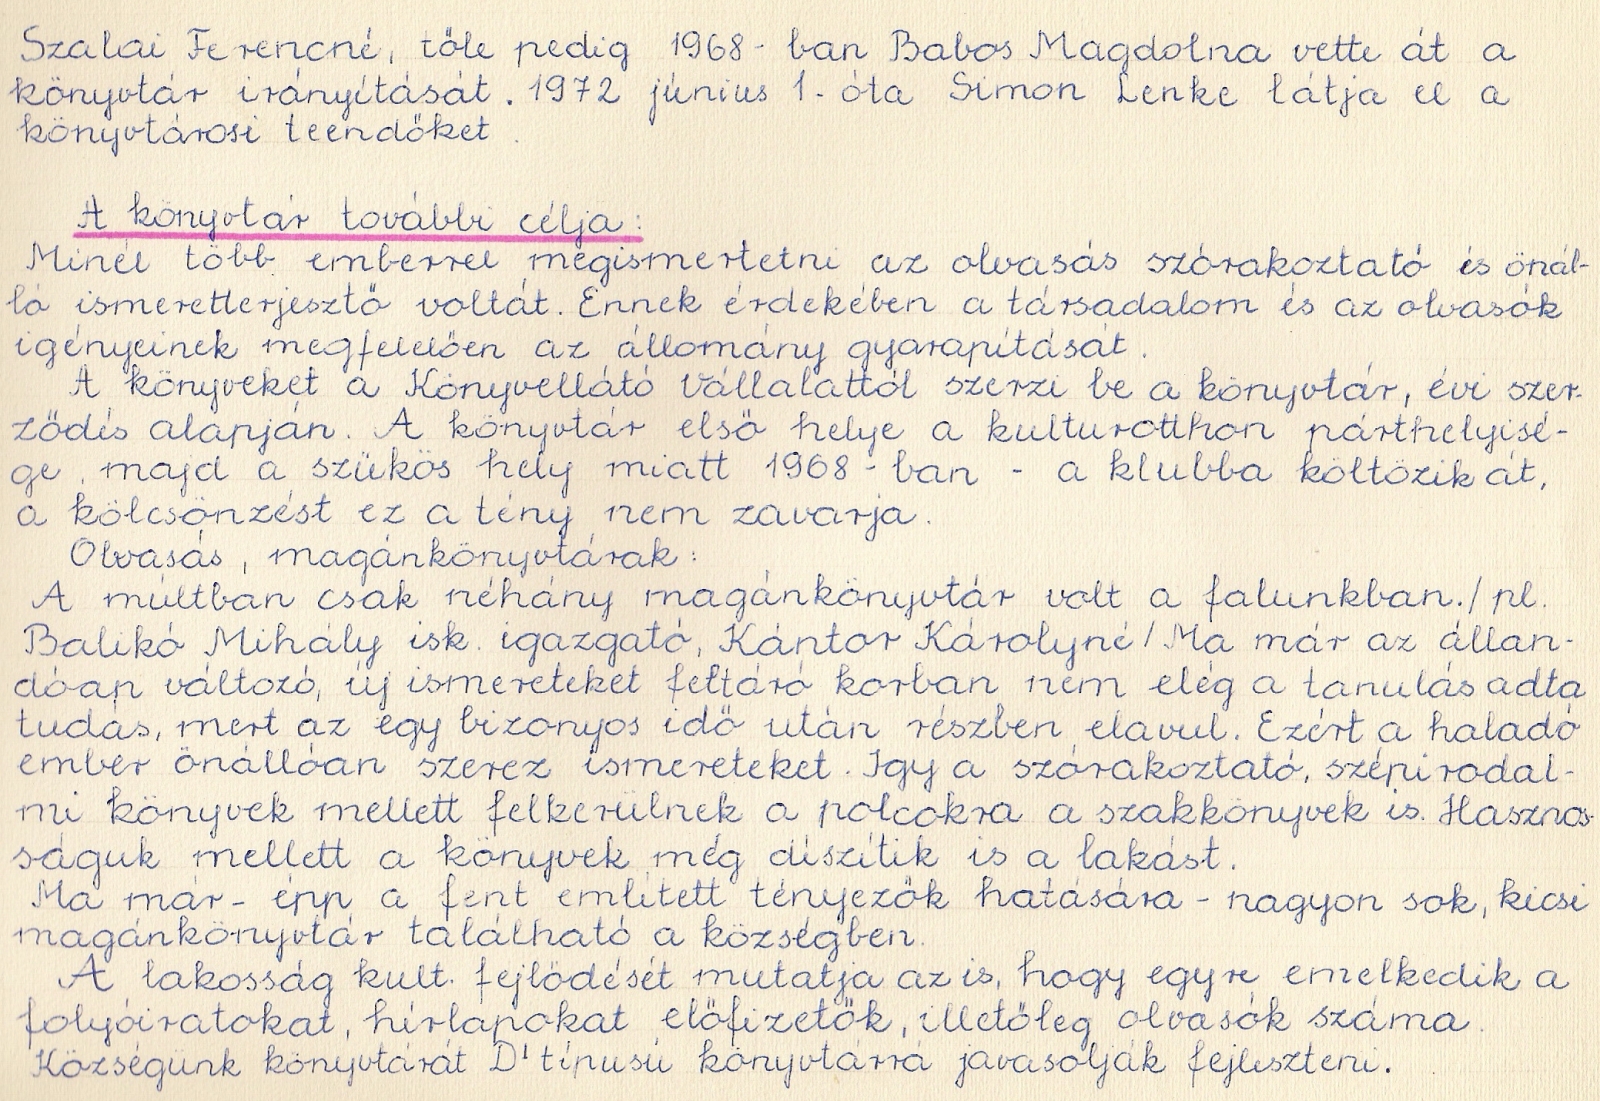 Szalai Ferencné, tőle pedig 1968-ban Babos Magdolna vette át a
könyvtár irányítását. 1972 június 1-óta Simon Lenke látja el a
könyvtárosi teendőket.
A könyvtár további célja:
Minél több emberrel megismertetni az olvasás szórakoztató és önál-
ló ismeretterjesztő voltát. Ennek érdekében a társadalom és az olvasók
igényeinek megfelelően az állomány gyarapítását.
A könyveket a Könyvellátó Vállalattól szerzi be a könyvtár, évi szer-
ződés alapján. A könyvtár első helye a kulturotthon párthelyisé-
ge, majd a szükös hely miatt 1968-ban - a klubba költözik át,
a kölcsönzést ez a tény nem zavarja.
Olvasás, magánkönyvtárak:
A múltban csak néhány magánkönyvtár volt a falunkban./ pl.
Balikó Mihály isk. igazgató, Kántor Károlyné/ Ma már az állan-
dóan változó, új ismereteket feltáró korban nem elég a tanulás adta
tudás, mert az egy bizonyos idő után részben elavul. Ezért a haladó
ember önállóan szerez ismereteket. Igy a szórakoztató, szépirodal-
mi könyvek mellett felkerülnek a polcokra a szakkönyvek is. Hasznos-
ságuk mellett a könyvek még díszítik is a lakást.
Ma már - épp a fent említett tényezők hatására - nagyon sok, kicsi
magánkönyvtár található a községben.
A lakosság kult. fejlődését mutatja az is, hogy egyre emelkedik a
folyóiratokat, hírlapokat előfizetők, illetőleg olvasók száma.
Községünk könyvtárát D' típusú könyvtárrá javasolják fejleszteni.